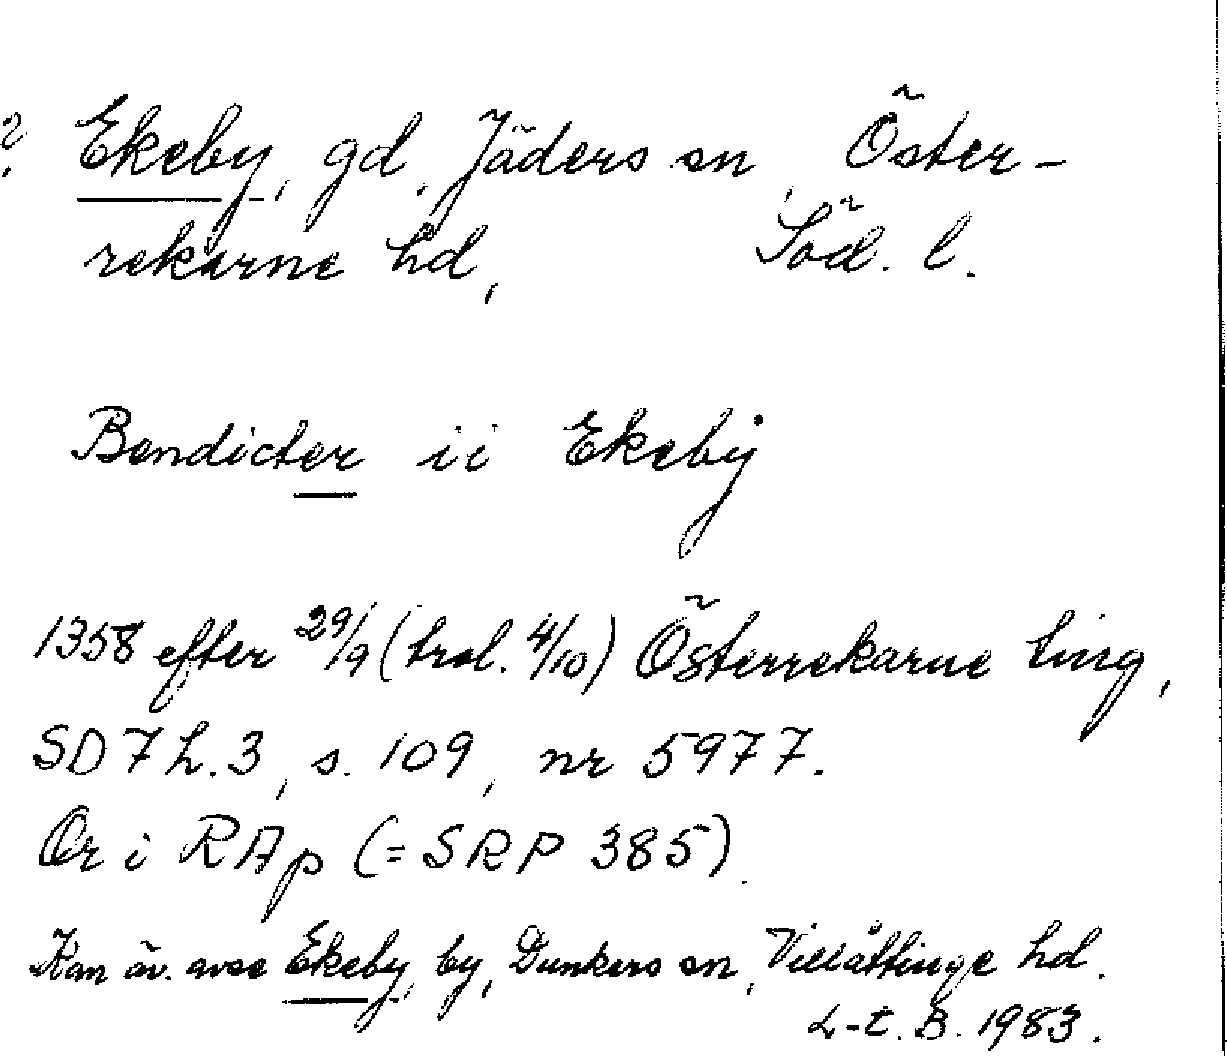 ? Ekeby, gd, Jäders sn, Öster-
rekarne hd, Söd. l.
Bendicter ii Ekeby
1358 efter 29/9 (trol. 4/10) Österrekarne ting,
SD 7 h. 3, s. 109, nr 5977.
Or i RAp (= SRP 385).
Kan äv. avse Ekeby, by, Dunkers sn, Villåttinge hd.
L-t. B. 1983.